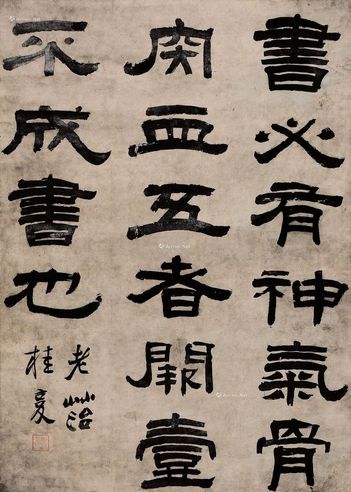 書必有神氣骨
肉血五者闕壹
不成書也
老苔
桂馥